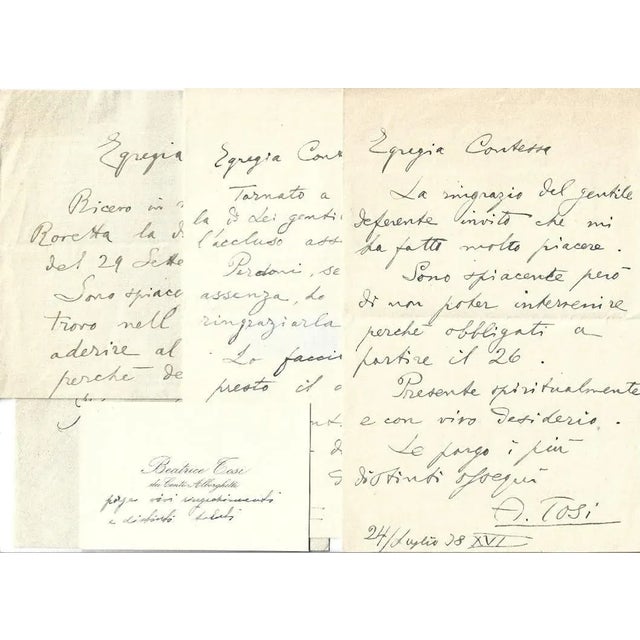 Egregia
Ricevo in
Roretta la d
del 29 Sette
Sono spiac
trovo nell
aderire al
perchè de
Egregia Cont
Tornato a
la di Lei genti
l'accluso ass
Perdoni, se
assenza, ho
ringraziarla
La faccio
presto il
Egregia Contessa
La ringrazio del gentile
deferente invito che mi
ha fatto molto piacere.
Sono spiacente però
di non poter intervenire
perchè obbligati a
partire il 26.
Presente spiritualmente
e con vivo desiderio.
Le porgo i più
distinti ossequi
A. Tosi
24/Luglio 38 XVI
Beatrice Tosi
dei Conti Alborghetti
porge vivi ringraziamenti
e distinti saluti